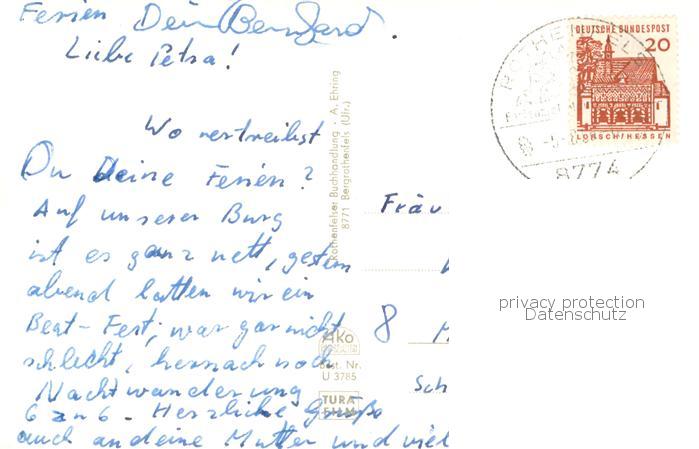 Ferien Dein Bernhard.
Liebe Petra!
Wo vertreibst
Du Deine Ferien?
Auf unserer Burg
ist es ganz nett, gestern
abend hatten wir ein
Beat-Fest; war gar nicht
schlecht, hernach noch
Nachtwanderung
6 zu 6. Herzliche Grüße
auch an deine Mutter und viel
Rothenfelser Buchhandlung · A. Ehring
8771 Bergrothenfels (Ufr.)
Ako
Best. Nr.
U 3785
TURA
FILM
DEUTSCHE BUNDESPOST
20
LORSCH/HESSEN
8774
Frau
8
Sch
privacy protection
Datenschutz